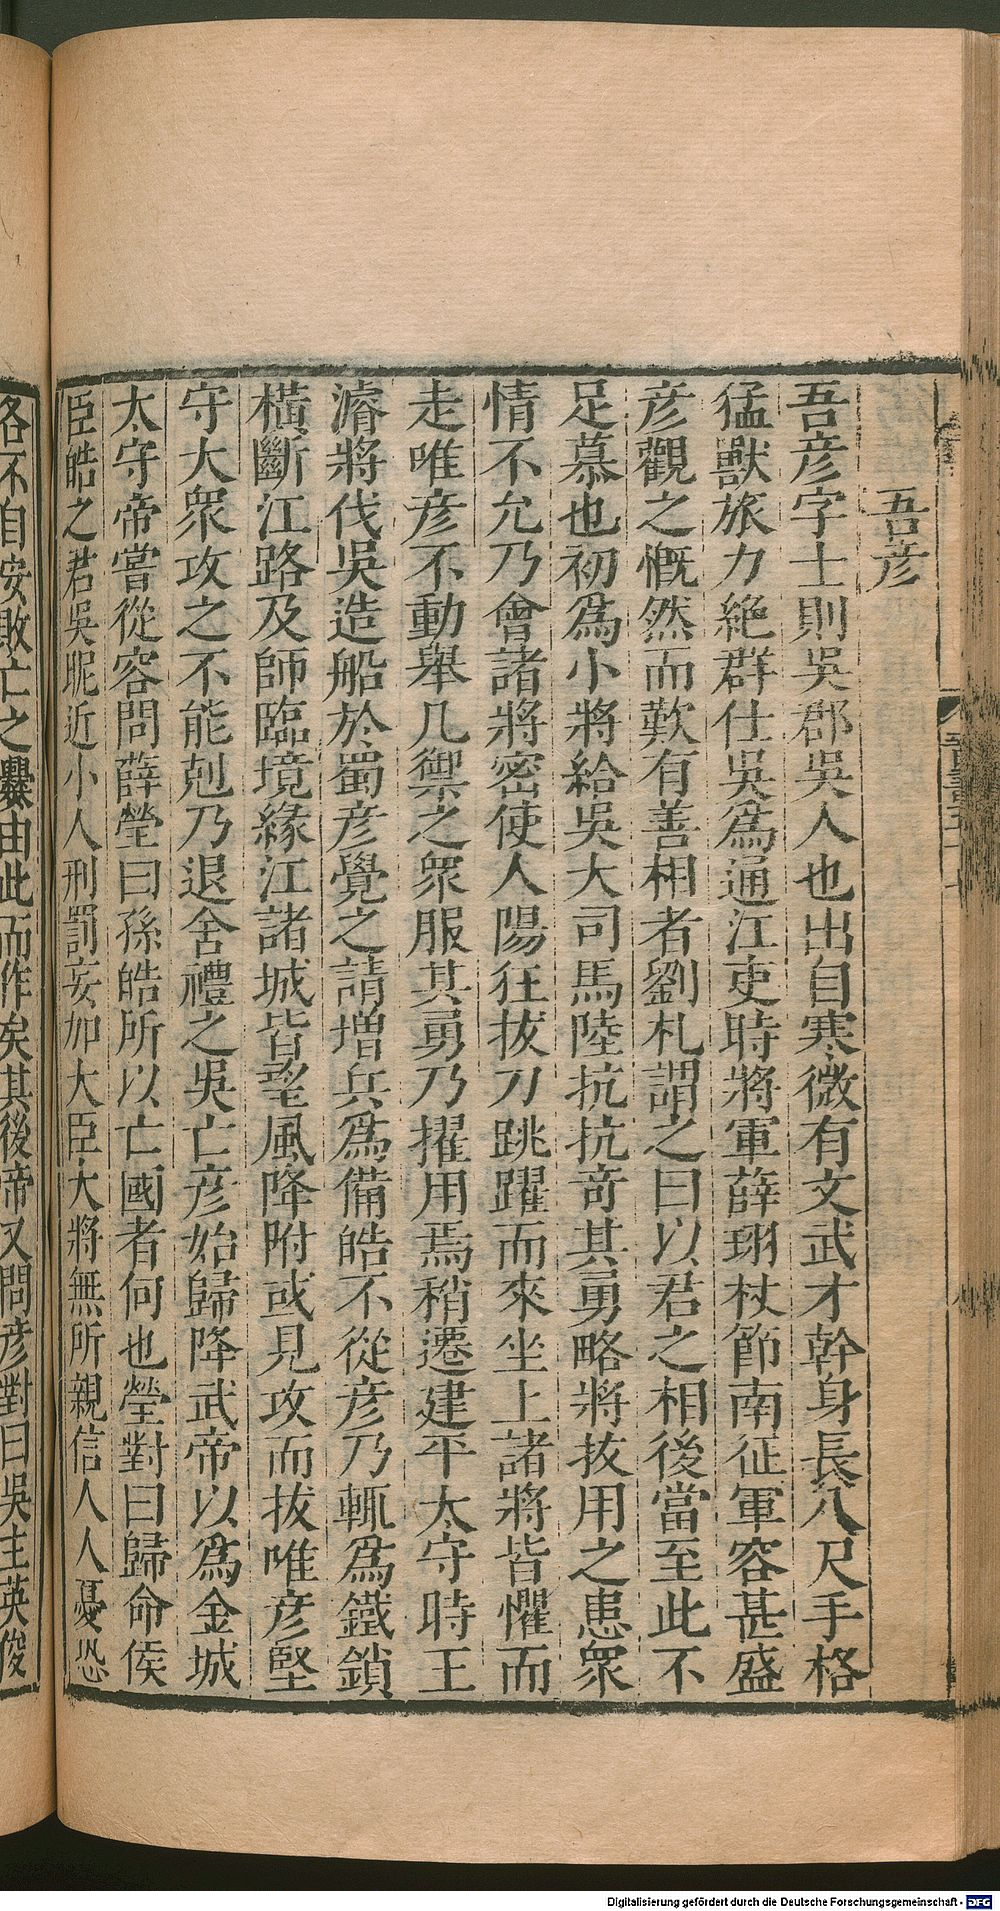 吾彦
吾彦字士則吳郡吳人也出自寒微有文武才幹身長八尺手格
猛獸旅力絕群仕吳爲通江吏時將軍薛珝杖節南征軍容甚盛
彦觀之慨然而歎有善相者劉札謂之曰以君之相後當至此不
足慕也初爲小將給吳大司馬陸抗抗奇其勇略將拔用之患衆
情不允乃會諸將密使人陽狂拔刀跳躍而來坐上諸將皆懼而
走唯彦不動舉几禦之衆服其勇乃擢用焉稍遷建平太守時王
濬將伐吳造船於蜀彦覺之請增兵爲備皓不從彦乃輒爲鐵鎖
橫斷江路及師臨境緣江諸城皆望風降附或見攻而拔唯彦堅
守大衆攻之不能剋乃退舍禮之吳亡彦始歸降武帝以爲金城
太守帝嘗從容問薛瑩曰孫皓所以亡國者何也瑩對曰歸命侯
臣皓之君吳昵近小人刑罰妄加大臣大將無所親信人人憂恐
各不自安敗亡之釁由此而作矣其後帝又問彦對曰吳主英俊
Digitalisierung gefördert durch die Deutsche Forschungsgemeinschaft - DFG